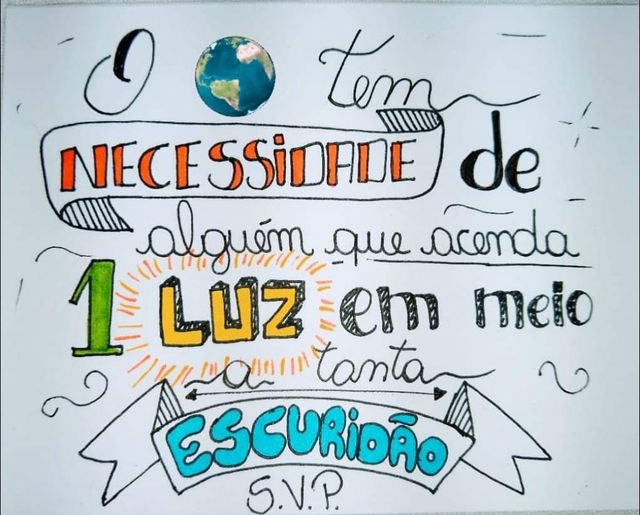 O tem
NECESSIDADE de
alguém que acenda
1 LUZ em meio
a tanta
ESCURIDÃO
S.V.P.